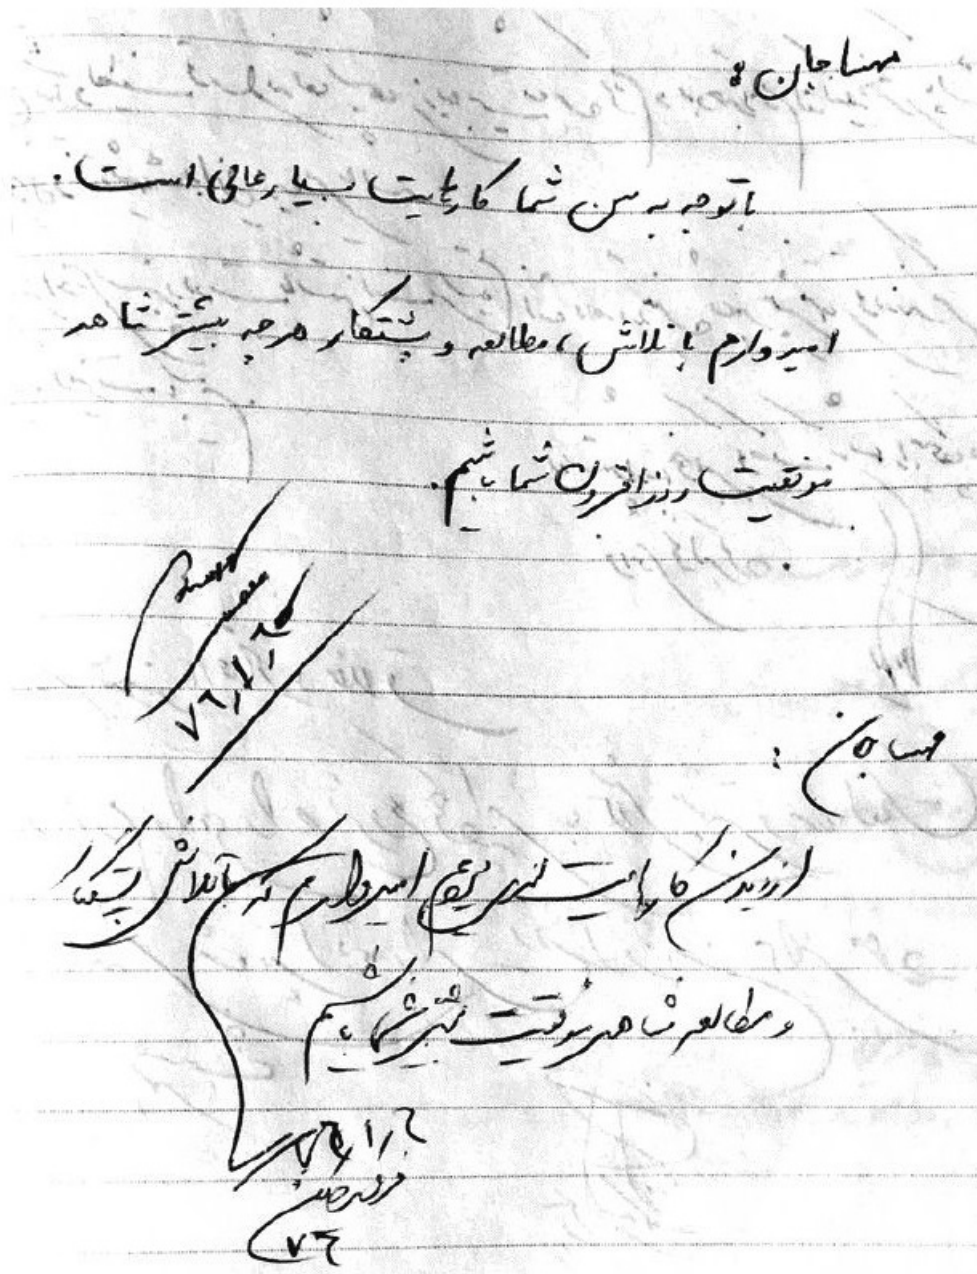 مهسا جان :
با توجه به سن شما کارهایت بسیار عالی است.
امیدوارم با تلاش، مطالعه و پشتکار هرچه بیشتر شاهد
موفقیت روزافزون شما باشیم.
مهسا جان :
از دیدن کارهایت لذت میبرم امیدوارم که با تلاش پشتکار
و مطالعه شاهد موفقیت بیشتر شما باشیم